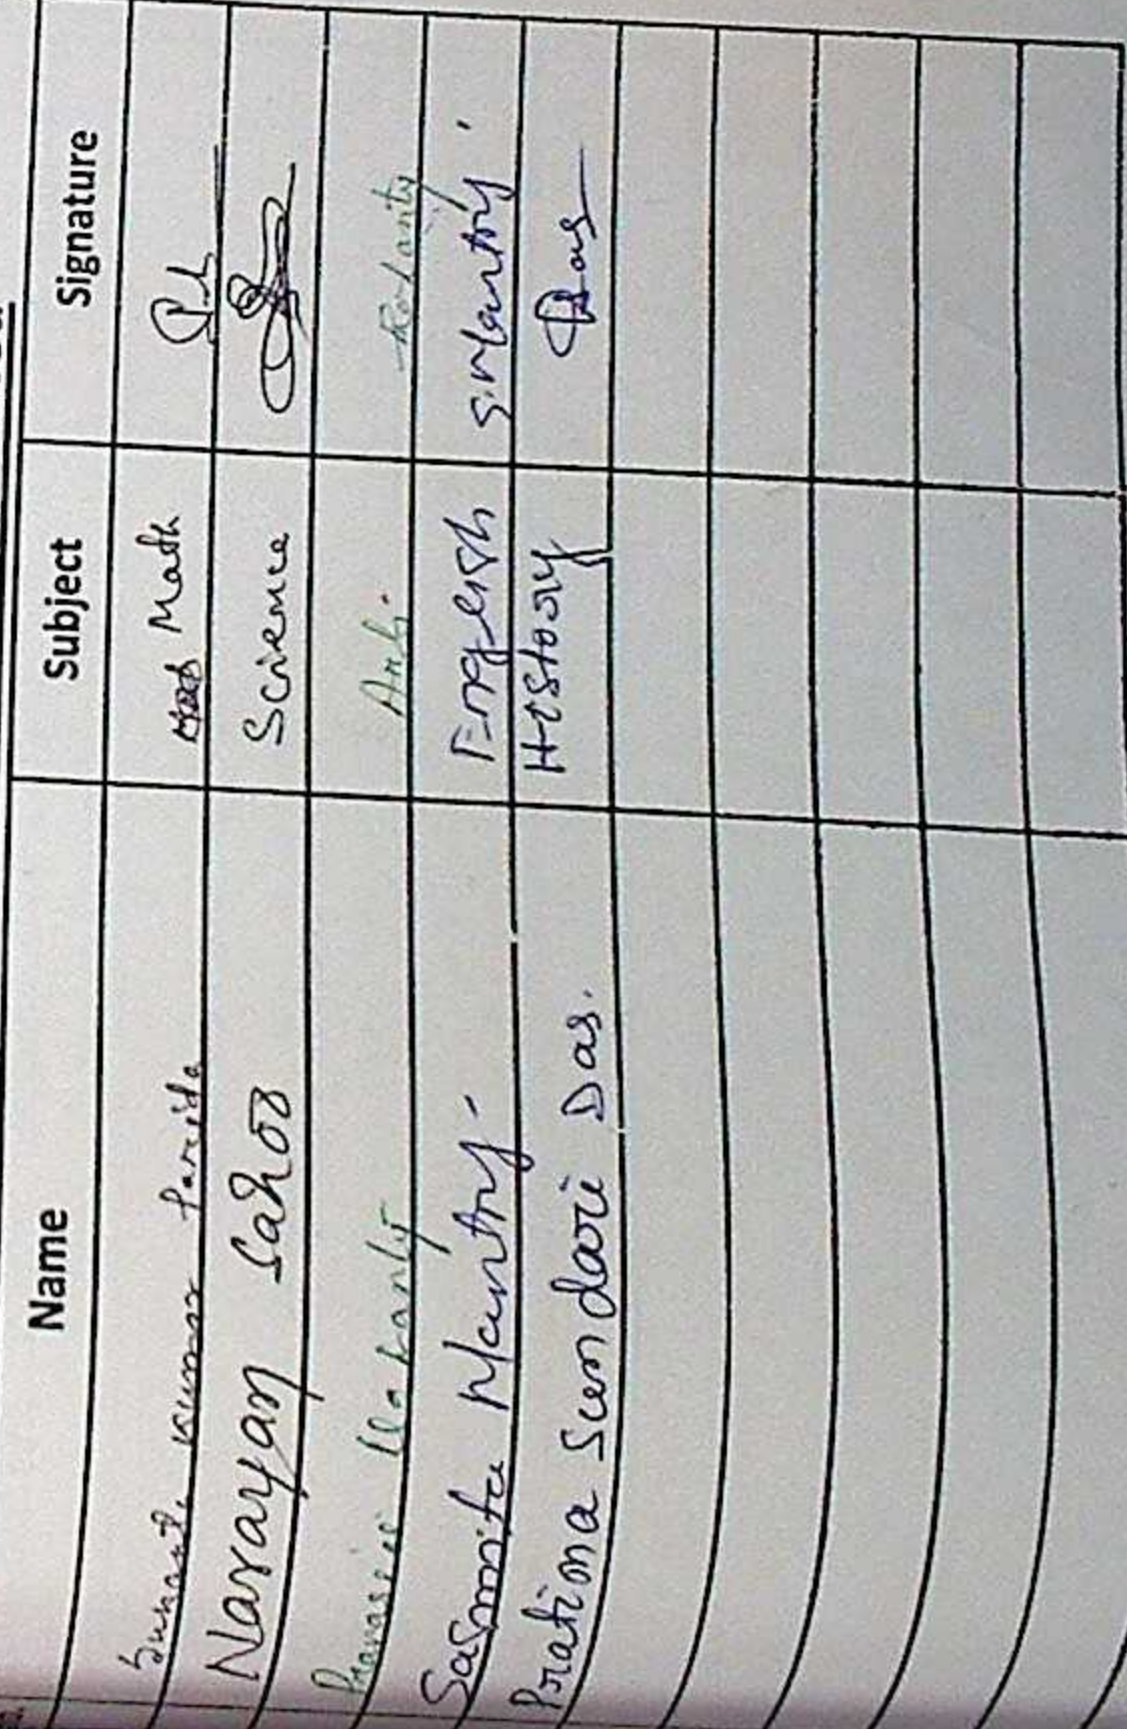 Name Subject Signature
Kumar Parida Math
Narayan Sahoo Science
Mohanty Mohanty
Sasmita Mantry - English S. Mantry.
Pratima Sundari Das. History Das